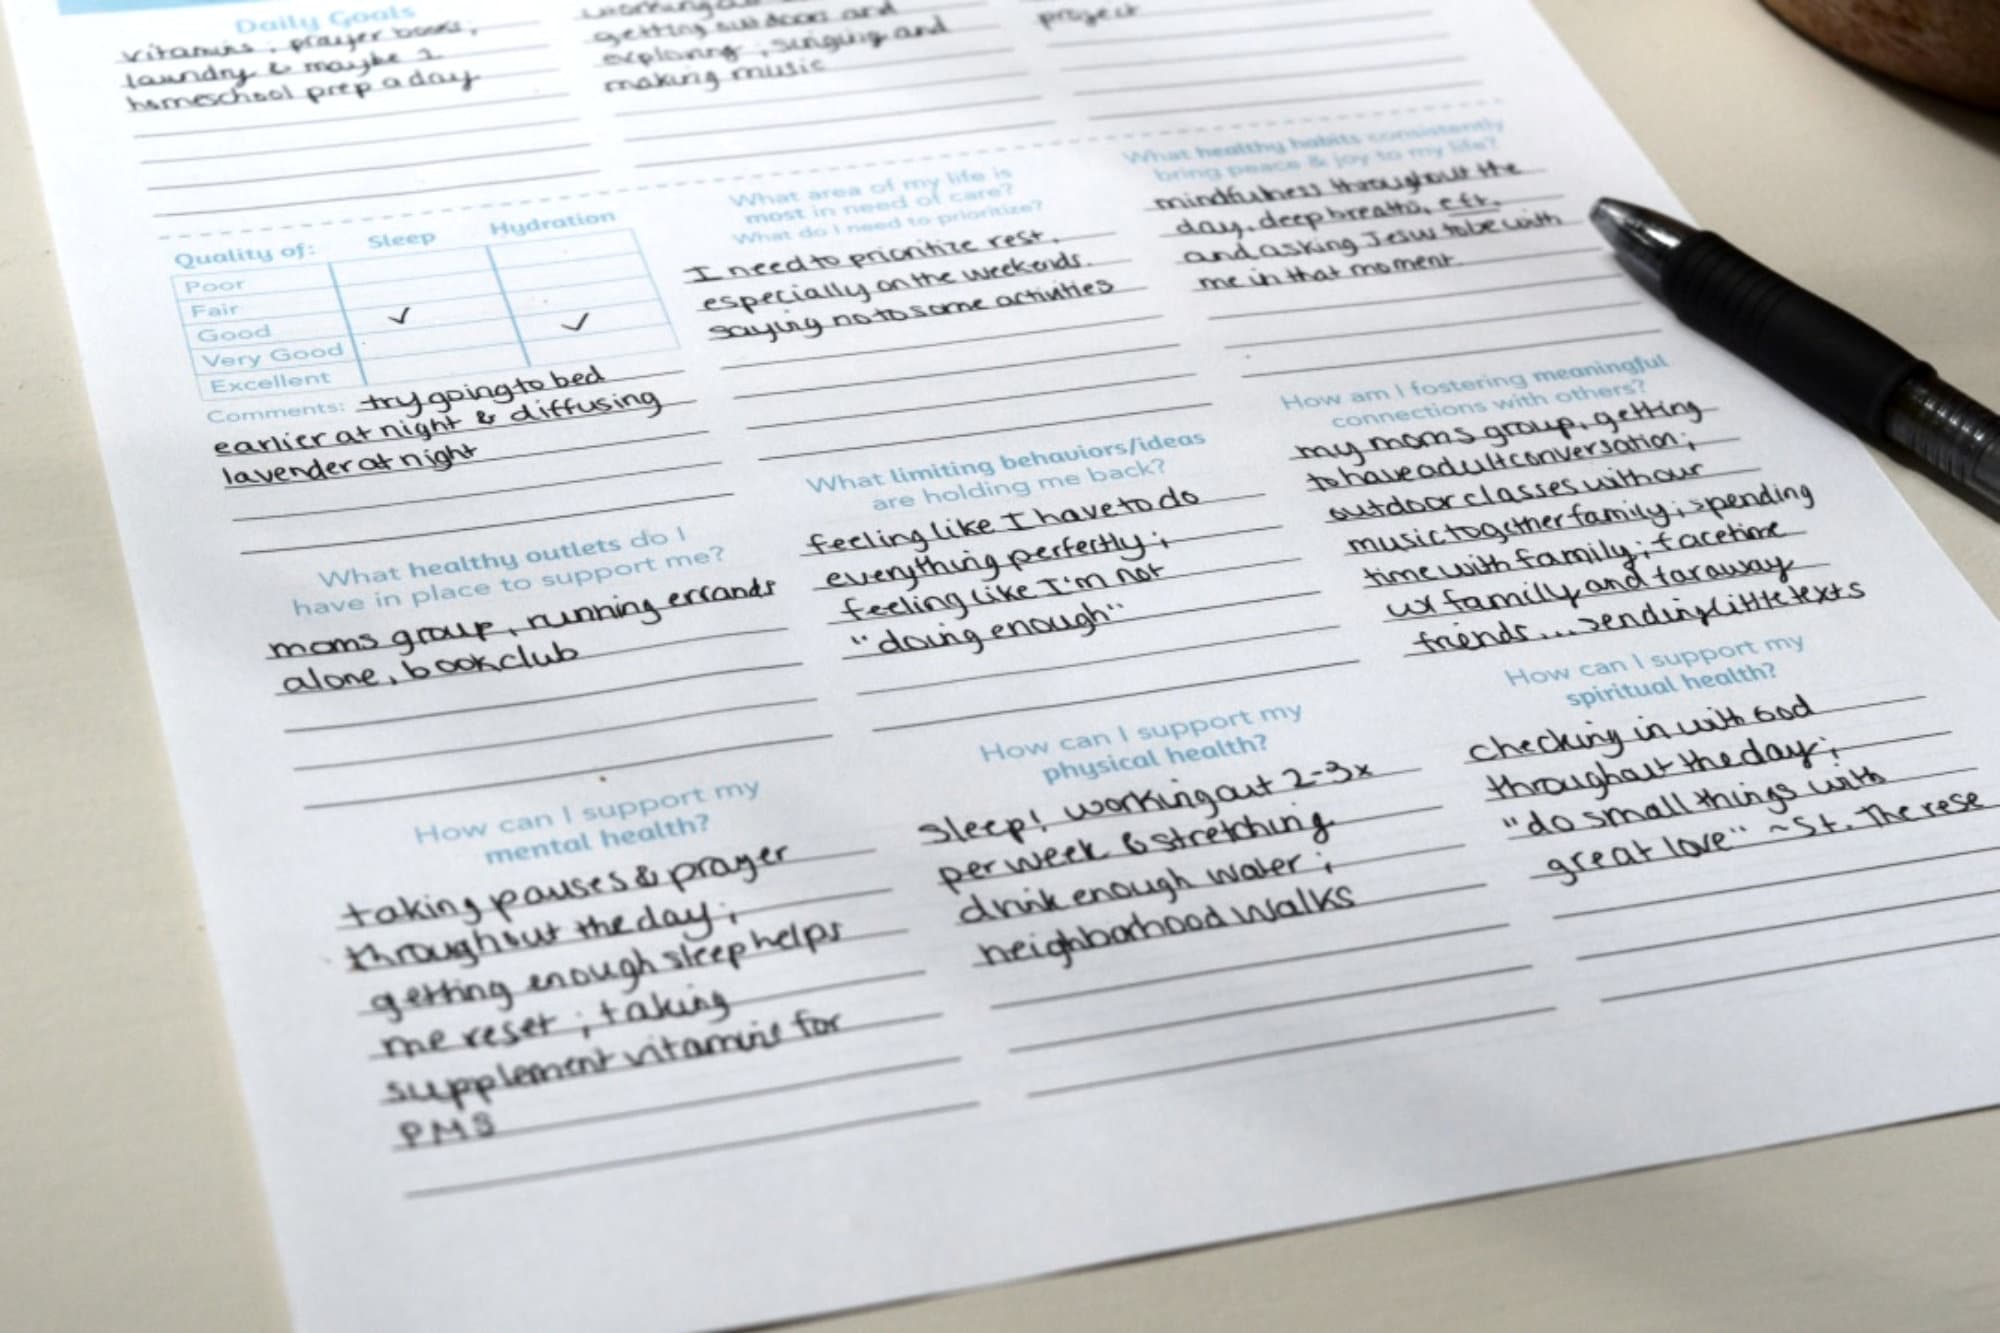 Daily Goals
vitamins, prayer books,
laundry & maybe 1
homeschool prep a day
getting outdoors and
exploring, singing and
making music
project
Quality of: Sleep Hydration
Poor
Fair
Good ✓
Very Good ✓
Excellent
Comments: try going to bed
earlier at night & diffusing
lavender at night
What area of my life is
most in need of care?
What do I need to prioritize?
I need to prioritize rest,
especially on the weekends.
saying no to some activities
What healthy habits consistently
bring peace & joy to my life?
mindfulness throughout the
day, deep breaths, eft,
and asking Jesus to be with
me in that moment
What healthy outlets do I
have in place to support me?
moms group, running errands
alone, book club
What limiting behaviors/ideas
are holding me back?
feeling like I have to do
everything perfectly;
feeling like I'm not
"doing enough"
How am I fostering meaningful
connections with others?
my moms group, getting
to have adult conversation;
outdoor classes with our
music together family; spending
time with family; facetime
w/ family and faraway
friends... sending little texts
How can I support my
mental health?
taking pauses & prayer
throughout the day;
getting enough sleep helps
me reset; taking
supplement vitamins for
PMS
How can I support my
physical health?
sleep! working out 2-3x
per week & stretching
drink enough water;
neighborhood walks
How can I support my
spiritual health?
checking in with God
throughout the day;
"do small things with
great love" ~St. Therese